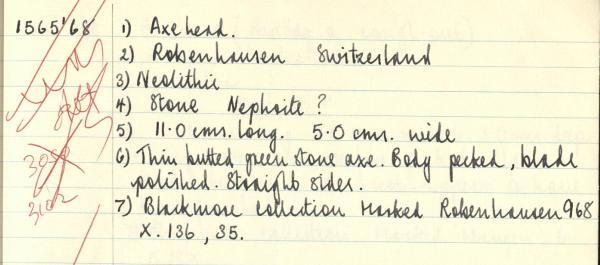 1565'68 1) Axehead.
2) Robenhausen Switzerland
3) Neolithic
4) Stone Nephrite ?
5) 11.0 cms. long. 5.0 cms. wide
6) Thin butted green stone axe. Body pecked, blade
polished. Straight sides.
7) Blackmore Collection Marked Robenhausen 968
X. 136, 35.
3102